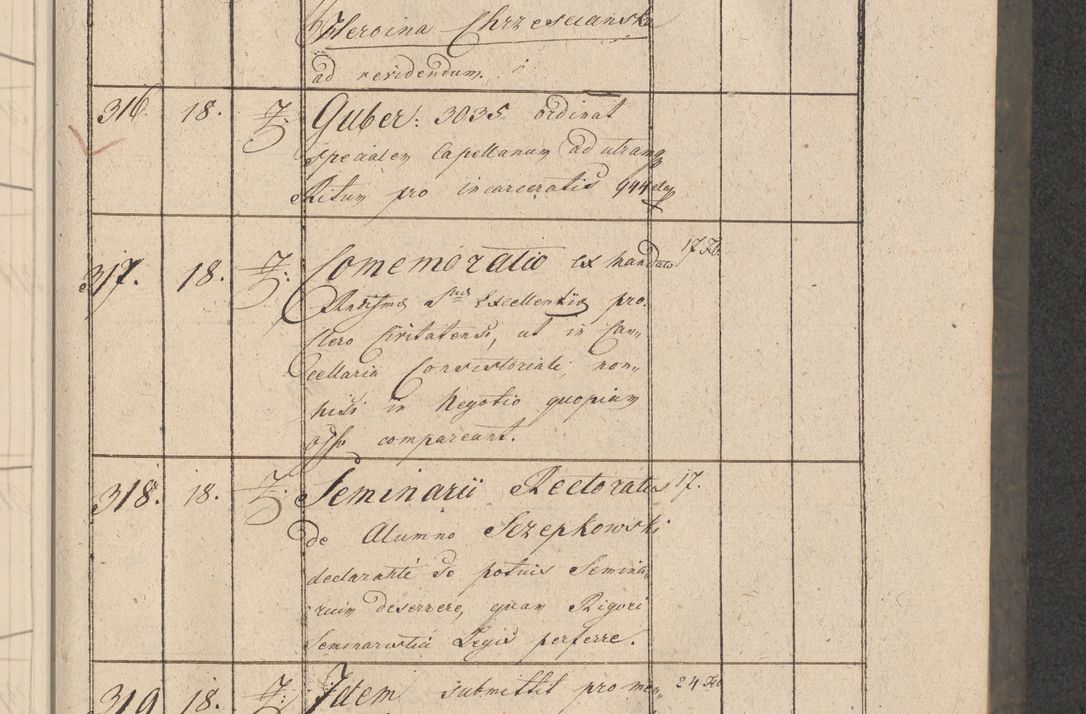 Heroina Chrzescianska
ad revidendum.
316. 18. Guber: 3035 ordinat
specialem Capellanum ad utramq
Ritum pro incarceratis
317. 18. Comemoratio ex mandato 17 Feb.
Excellentiæ pro
Clero Civitatensi, ut in Can„
cellaria Consistoriali, non„
nisi in Negotio quopiam
Offo compareant.
318. 18. Seminarii Rectoratus 17.
de Alumno Szepkowski
declaranti se potuis Semina„
rium deserrere, quam Rigori
Seminaristici Legis perferre.
319 18. Idem submittit pro men„ 24 Feb